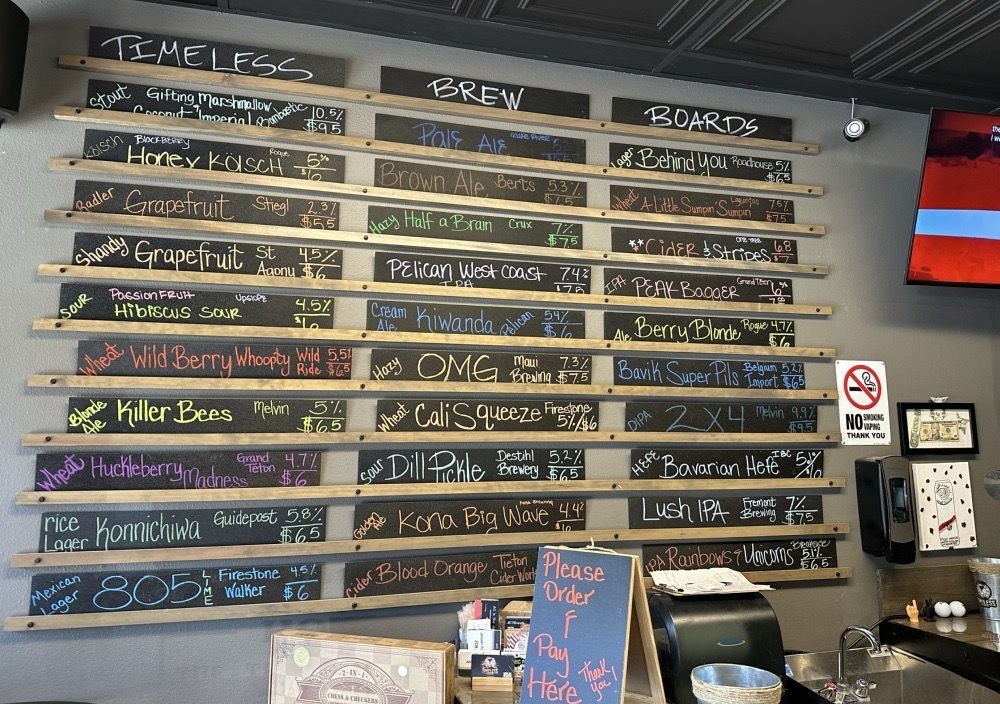 TIMELESS
BREW
BOARDS
Stout Gifting Marshmallow 10.5%
Coconut Imperial Bombastic $9.5
Kölsch Blackberry
Honey Kölsch Rogue 5% $6
Radler Grapefruit Stiegl 2.3% $5.5
Shandy Grapefruit St Agonu 4.5% $6
Sour Passion Fruit Upslope 4.5%
Hibiscus Sour $6
Wheat Wild Berry Whoopty Wild Ride 5.5% $6.5
Blonde Ale Killer Bees Melvin 5% $6.5
Wheat Huckleberry Grand Teton 4.7%
Madness $6
Rice Lager Konnichiwa Guidepost 5.8% $6.5
Mexican Lager 805 LIME Firestone Walker 4.5% $6
Pale Ale Snake River
Brown Ale Berts 5.3% $7.5
Hazy Half a Brain Crux 7% $7.5
Pelican West Coast 7.4%
IPA $7.5
Cream Ale Kiwanda Pelican 5.4% $6
Hazy OMG Maui Brewing 7.3% $7.5
Wheat Cali Squeeze Firestone 5% $6
Sour Dill Pickle Destihl Brewery 5.2% $6.5
Golden Ale Kona Big Wave Kona Brewing 4.4% $6
Cider Blood Orange Tieton Cider Works
Lager Behind You Roadhouse 5% $6.5
Wheat A Little Sumpin' Sumpin Lagunitas 7.5% $7.5
Cider & Stripes One Tree 6.8 $7
IPA Peak Bagger Grand Teton
Ale Berry Blonde Rogue 4.7% $6
Bavik Super Pils Belgium Import 5.2% $6.5
DIPA 2X4 Melvin 9.9% $9.5
Hefe Bavarian Hefe IBC
Lush IPA Fremont Brewing 7% $7.5
IPA Rainbows & Unicorns 5.1% $6.5
NO SMOKING
VAPING
THANK YOU
Please
Order
&
Pay
Here
Thank you!
2-IN-1
CHESS & CHECKERS